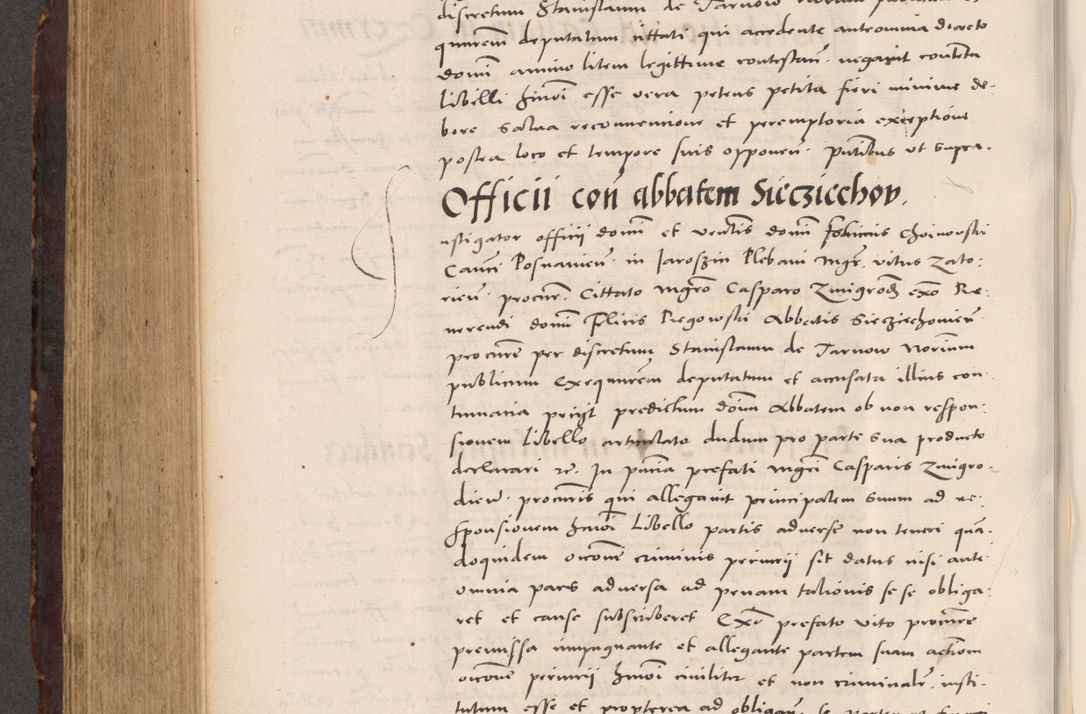 discretum Stanislaum de Tarnow
quirem deputatum cittati qui accedente antromnia decreto
domi animo litem legittime contestan. negavit contenta
libelli hmoi esse vera petens petita fieri minime de-
bere salva reconventione et peremptoria exceptione
postea loco et tempore suis opponen. pntibus ut supra.
Officii con abbatem Siecziechov.
nstigator officii domi et ventis domi Choinorski
Canci Posnanien. in Jaroszin Plebani mgr. vitus Zato-
rien. procur. Cittato mgro Casparo Zmigrod exo Re-
verendi domi Felicis Regowski Abbatis Siecziechovien
procure per discretum Stanislaum de Tarnow Norium
publicum Exequurem deputatum et accusata illius con-
tumacia petijt predictum doim Abbatem ob non respon-
sionem libello articulato dudum pro parte sua producto
declarari rc. In pnia prefati mgri Casparis Zmigro-
dien. procuris qui allegavit principalem suum ad re-
sponsionem hmoi Libello partis adverse non teneri quan-
doquidem oicone criminis periurii sit datus nisi ante
omnia pars adversa ad penam talionis se se obliga-
ret et cause subscriberet Exn prefato vito procure
premissa impugnante et allegante partem suam actiom
oicone periurii hmoi civiliter et non criminalr. insti-
tutam esse et propterea ad